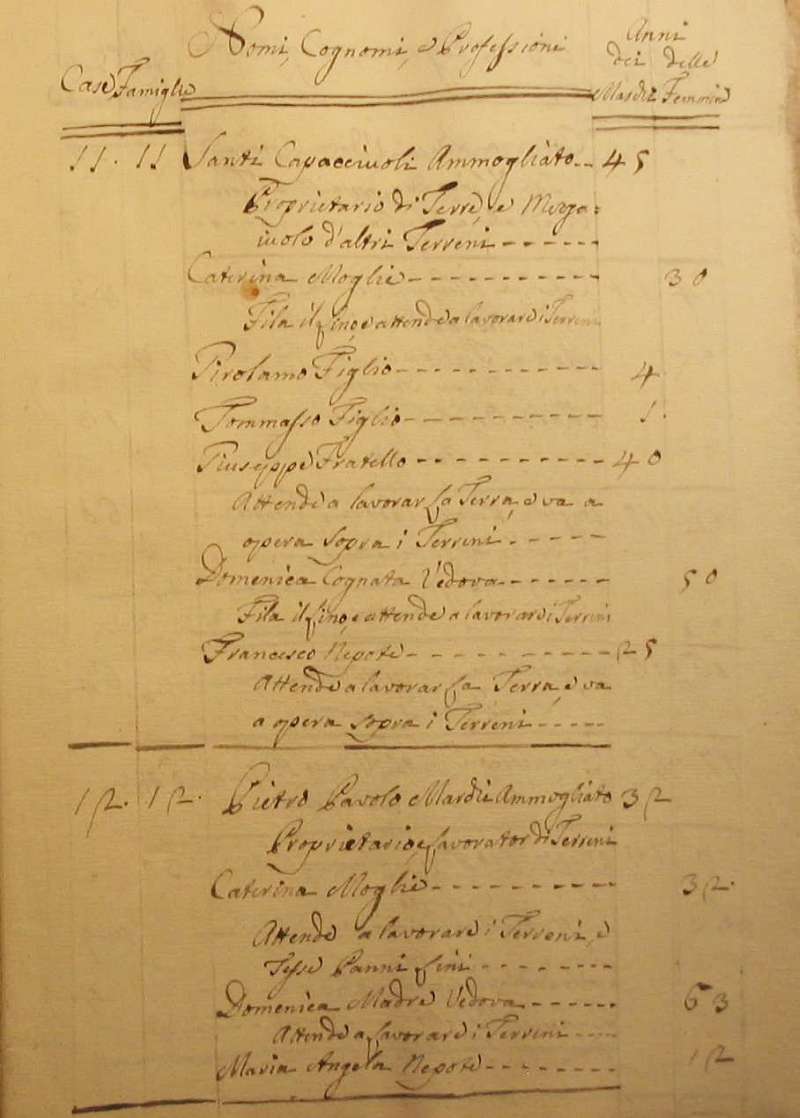 Nomi, Cognomi, e Professioni
Anni
dei delle
Case Famiglie
Maschi Femmine
11. 11 Santi Capacciuoli Ammogliato 45
Proprietario di Terre, e Mezza=
iuolo d'altri Terreni
Caterina Moglie 30
Fila il Lino, e attende a lavorare i Terreni
Girolamo Figlio 4
Tommasso Figlio 1.
Giuseppe Fratello 40
Attende a lavorar la Terra, e va a
opera sopra i Terreni
Domenica Cognata Vedova 50
Fila il Lino, e attende a lavorare i Terreni
Francesco Nepote 25
Attende a lavorar la Terra, e va
a opera sopra i Terreni
12. 12. Pietro Pavolo Ammogliato 32
Proprietario, e lavorator di Terreni
Caterina Moglie 32.
Attende a lavorare i Terreni, e
Tesse Panni Lini
Domenica Madre Vedova 63
Attende a lavorare i Terreni
Maria Angela Nepote 12